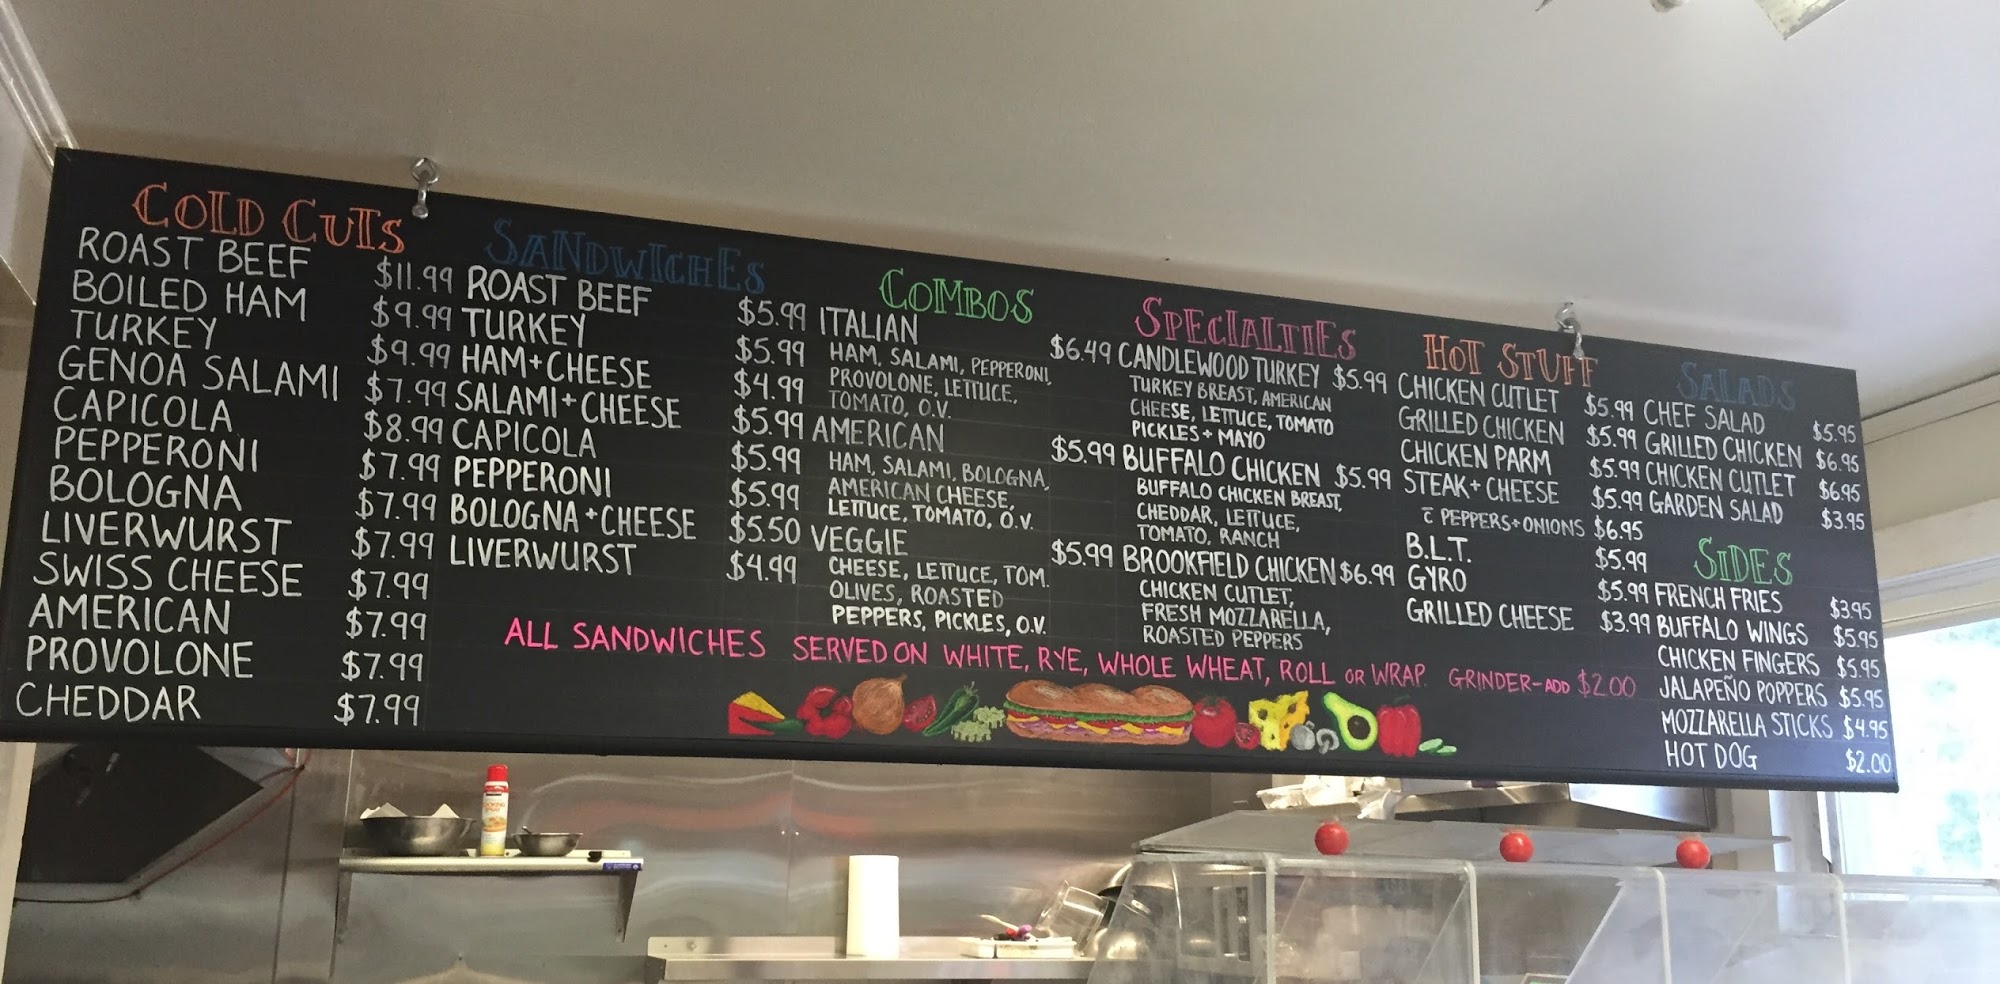 COLD CUTS
ROAST BEEF $11.99
BOILED HAM $9.99
TURKEY $9.99
GENOA SALAMI $7.99
CAPICOLA $8.99
PEPPERONI $7.99
BOLOGNA $7.99
LIVERWURST $7.99
SWISS CHEESE $7.99
AMERICAN $7.99
PROVOLONE $7.99
CHEDDAR $7.99
SANDWICHES
ROAST BEEF $5.99
TURKEY $5.99
HAM+CHEESE $4.99
SALAMI+CHEESE $5.99
CAPICOLA $5.99
PEPPERONI $5.99
BOLOGNA+CHEESE $5.50
LIVERWURST $4.99
COMBOS
ITALIAN $6.49
HAM, SALAMI, PEPPERONI,
PROVOLONE, LETTUCE,
TOMATO, O.V.
AMERICAN $5.99
HAM, SALAMI, BOLOGNA,
AMERICAN CHEESE,
LETTUCE, TOMATO, O.V.
VEGGIE $5.99
CHEESE, LETTUCE, TOM.
OLIVES, ROASTED
PEPPERS, PICKLES, O.V.
SPECIALTIES
CANDLEWOOD TURKEY $5.99
TURKEY BREAST, AMERICAN
CHEESE, LETTUCE, TOMATO
PICKLES + MAYO
BUFFALO CHICKEN $5.99
BUFFALO CHICKEN BREAST,
CHEDDAR, LETTUCE,
TOMATO, RANCH
BROOKFIELD CHICKEN $6.99
CHICKEN CUTLET,
FRESH MOZZARELLA,
ROASTED PEPPERS
HOT STUFF
CHICKEN CUTLET $5.99
GRILLED CHICKEN $5.99
CHICKEN PARM $5.99
STEAK+CHEESE $5.99
c̄ PEPPERS+ONIONS $6.95
B.L.T. $5.99
GYRO $5.99
GRILLED CHEESE $3.99
SALADS
CHEF SALAD $5.95
GRILLED CHICKEN $6.95
CHICKEN CUTLET $6.95
GARDEN SALAD $3.95
SIDES
FRENCH FRIES $3.95
BUFFALO WINGS $5.95
CHICKEN FINGERS $5.95
JALAPEÑO POPPERS $5.95
MOZZARELLA STICKS $4.95
HOT DOG $2.00
ALL SANDWICHES SERVED ON WHITE, RYE, WHOLE WHEAT, ROLL OR WRAP. GRINDER-ADD $2.00